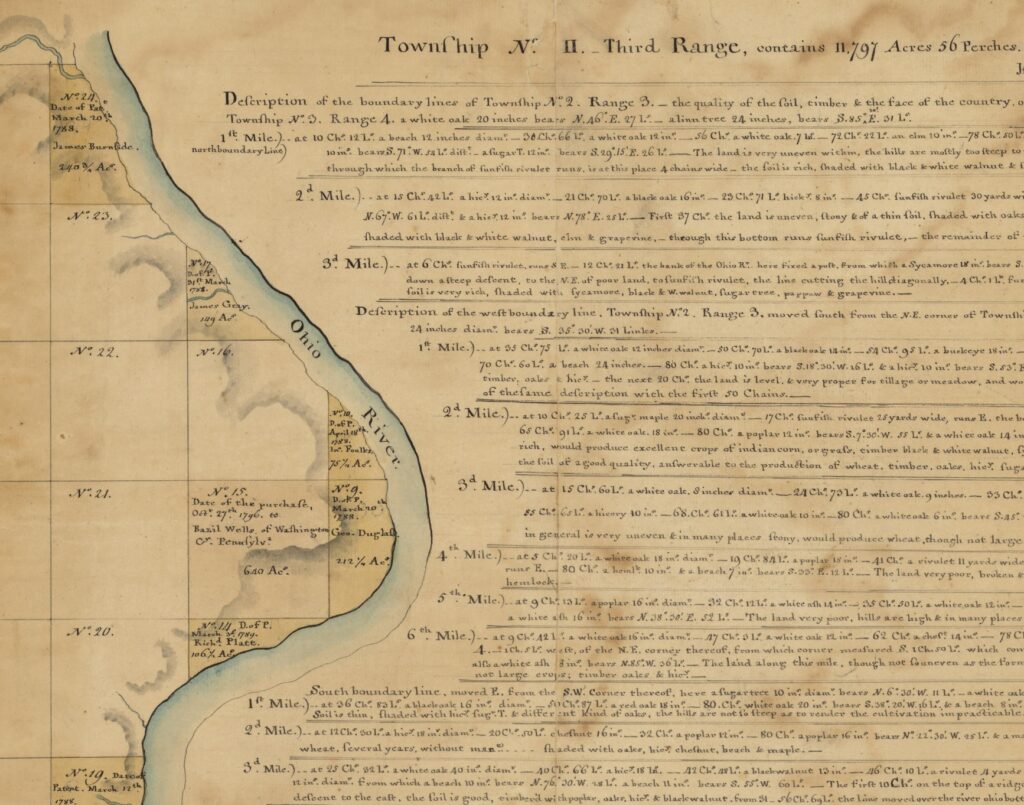 Township Nº. II. _ Third Range, contains 11,797 Acres 56 Perches.
Description of the boundary lines of Township Nº.2. Range 3. — the quality of the soil, timber & the face of the country, o
Township Nº.3. Range 4. a white oak 20 inches bears N.46°.E. 27 Lˢ. — a linn tree 24 inches, bears S.85°.E. 31 Lˢ.
1st Mile.)-- at 10 Chˢ. 12 Lˢ. a beach 12 inches diamʳ. — 38 Chˢ. 66 Lˢ. a white oak 12 inˢ. — 56 Chˢ. a white oak. 7 inˢ. — 72 Chˢ. 22 Lˢ. an elm 10 inˢ. — 78 Chˢ. 50 L
north boundary Line)
10 inˢ. bears S.71°.W. 54 Lˢ. distᵗ. — a sugar T. 12 inˢ. bears S.29°.15'.E. 26 Lˢ. — The land is very uneven within, the hills are mostly too steep to
through which the branch of sunfish rivulet runs, is at this place 4 chains wide — the soil is rich, shaded with black & white walnut &
2d Mile.)-- at 15 Chˢ. 42 Lˢ. a hicʸ. 12 inˢ. diamʳ. — 21 Chˢ. 70 Lˢ. a black oak 16 inˢ. — 29 Chˢ. 71 Lˢ. hickʸ. 8 inˢ. — 45 Chˢ. sunfish rivulet 30 yards wi
N.67°.W. 61 Lˢ. distᵗ. & a hicʸ. 12 inˢ. bears N.78°.E. 25 Lˢ. — First 37 Chˢ. the land is uneven, stony & of a thin soil, shaded with oaks
shaded with black & white walnut, elm & grapevine, — through this bottom runs sunfish rivulet, — the remainder of
3d Mile.)-- at 6 Chˢ. sunfish rivulet, runs S E. — 12 Chˢ. 21 Lˢ. the bank of the Ohio Rʳ. here fixed a post, from which a Sycamore 18 inˢ. bears S.
down a steep descent, to the N.E. of poor land, to sunfish rivulet, the line cutting the hill diagonally, — 4 Chˢ. 1 Lˢ. fur
soil is very rich, shaded with sycamore, black & w. walnut, sugar tree, pappaw & grapevine.
Description of the west boundary line, Township Nº.2. Range 3. moved south from the N.E. corner of Townsh
24 inches diamʳ. bears S. 35°.30'.W. 31 Links.
1st Mile.)-- at 35 Chˢ. 75 Lˢ. a white oak 12 inches diamʳ. — 50 Chˢ. 70 Lˢ. a black oak 14 inˢ. — 54 Chˢ. 95 Lˢ. a buckeye 18 inˢ. —
70 Chˢ. 60 Lˢ. a beach 24 inches. — 80 Chˢ. a hicʸ. 10 inˢ. bears S.18°.30'.W. 16 Lˢ. & a hicʸ. 10 inˢ. bears S.53°.E
timber, oaks & hicʸ. — the next 20 Chˢ. the land is level, & very proper for tillage or meadow, and wo
of the same description with the first 50 Chains.
2d Mile.)-- at 10 Chˢ. 25 Lˢ. a sugʳ. maple 20 inchˢ. diamʳ. — 17 Chˢ. sunfish rivulet 25 yards wide, runs E. the b
65 Chˢ. 91 Lˢ. a white oak. 18 inˢ. — 80 Chˢ. a poplar 12 inˢ. bears S.7°.30'.W. 55 Lˢ. & a white oak 14 in
rich, would produce excellent crops of indian corn, or grass, timber black & white walnut, s
the soil of a good quality, answerable to the production of wheat, timber, oaks, hicʸ. suga
3d Mile.)-- at 15 Chˢ. 60 Lˢ. a white oak, 8 inches diamʳ. — 24 Chˢ. 73 Lˢ. a white oak. 9 inches. — 33 Ch
55 Chˢ. 65 Lˢ. a hicory 10 inˢ. — 68 Chˢ. 61 Lˢ. a white oak 10 inˢ. — 80 Chˢ. a white oak 6 inˢ. bears S.45°.
in general is very uneven & in many places stony, would produce wheat, though not large
4th Mile.)-- at 5 Chˢ. 20 Lˢ. a white oak 18 inˢ. diamʳ. — 19 Chˢ. 84 Lˢ. a poplar 18 inˢ. — 41 Chˢ. a rivulet 11 yards wide
runs E. — 80 Chˢ. a hemlᵏ. 10 inˢ. & a beach 7 inˢ. bears S.33°.E. 12 Lˢ. — The land very poor, broken &
hemlock.
5th Mile.)-- at 9 Chˢ. 13 Lˢ. a poplar 16 inˢ. diamʳ. — 32 Chˢ. 12 Lˢ. a white ash 14 inˢ. — 35 Chˢ. 50 Lˢ. a white oak 12 inˢ. —
a white ash 16 inˢ. bears N.38°.30'.E. 52 Lˢ. — The land very poor, hills are high & in many places
6th Mile.)-- at 9 Chˢ. 42 Lˢ. a white oak 16 inˢ. diamʳ. — 47 Chˢ. 9 Lˢ. a white oak 12 inˢ. — 62 Chˢ. a chesᵗ. 14 inˢ. — 78 C
4. 1 Ch. 5 Lˢ. west, of the N.E. corner thereof, from which corner measured S. 1 Ch. 50 Lˢ. which com
also a white ash 8 inˢ. bears N.85°.W. 36 Lˢ. — The land along this mile, though not so uneven as the form
not large crops; timber oaks & hicʸ.
South boundary line, moved E. from the S.W. Corner thereof, here a sugar tree 10 inˢ. diamʳ. bears N.6°.30'.W. 11 Lˢ. — a white oak
1st Mile.)-- at 36 Chˢ. 83 Lˢ. a black oak 16 inˢ. diamʳ. — 50 Chˢ. 87 Lˢ. a red oak 18 inˢ. — 80. Chˢ. white oak 20 inˢ. bears S.38°.20'.W. 16 Lˢ. & a beach 8 inˢ.
Soil is thin, shaded with hicʸ. sugʳ. T. & different kind of oaks, the hills are not so steep as to render the cultivation impracticable
2d Mile.)-- at 12 Chˢ. 30 Lˢ. a hicʸ. 18 inˢ. diamʳ. — 20 Chˢ. 50 Lˢ. chesnut 16 inˢ. — 32 Chˢ. a poplar 12 inˢ. — 80 Chˢ. a poplar 16 inˢ. bears N.22°.30'.W. 25 Lˢ. & a ma
wheat, several years, without man shaded with oaks, hicʸ. chesnut, beach & maple. —
3d Mile.)-- at 25 Chˢ. 32 Lˢ. a white oak 40 inˢ. diamʳ. — 40 Chˢ. 66 Lˢ. a hicʸ. 18 inˢ. — 42 Chˢ. 48 Lˢ. a black walnut 13 inˢ. — 46 Chˢ. 10 Lˢ. a rivulet 4 yards
12 inˢ. diamʳ. from which a beach 10 inˢ. bears N.76°.30'.W. 28 Lˢ. a beach 11 inˢ. bears S.55°.W. 60 Lˢ. — The first 10 Chˢ. on the top of a ridg
descent to the east, the soil is good, timbered with poplar, oaks, hicʸ. & black walnut, from 31. 56 Chˢ. 69 Lˢ. the line moved over the river
Nº. 24.
Date of Patᵗ.
March 20th
1788.
James Burnside.
240 ¾ Aˢ.
Nº. 23.
Nº. 17.
D. of P.
31st March
1788.
James Gray.
149 Aˢ.
Nº. 22.
Nº. 16.
Nº. 10.
D. of P.
April 18th
1788.
Foulks
Ohio River.
Nº. 21.
Nº. 15.
Date of the purchase,
Octʳ. 27th 1796. to
Bazil Wells, of Washington
Cʸ. Pennsylvᵃ.
640 Aˢ.
Nº. 9.
D. of P.
March 20th
1788.
Geo. Duglass
212 ½ Aˢ.
Nº. 20.
Nº. 14. D. of P.
March 3d 1789.
Richd. Platt.
106 ½ Aˢ.
Nº. 19. Date of
Patent. March 12th
1788.